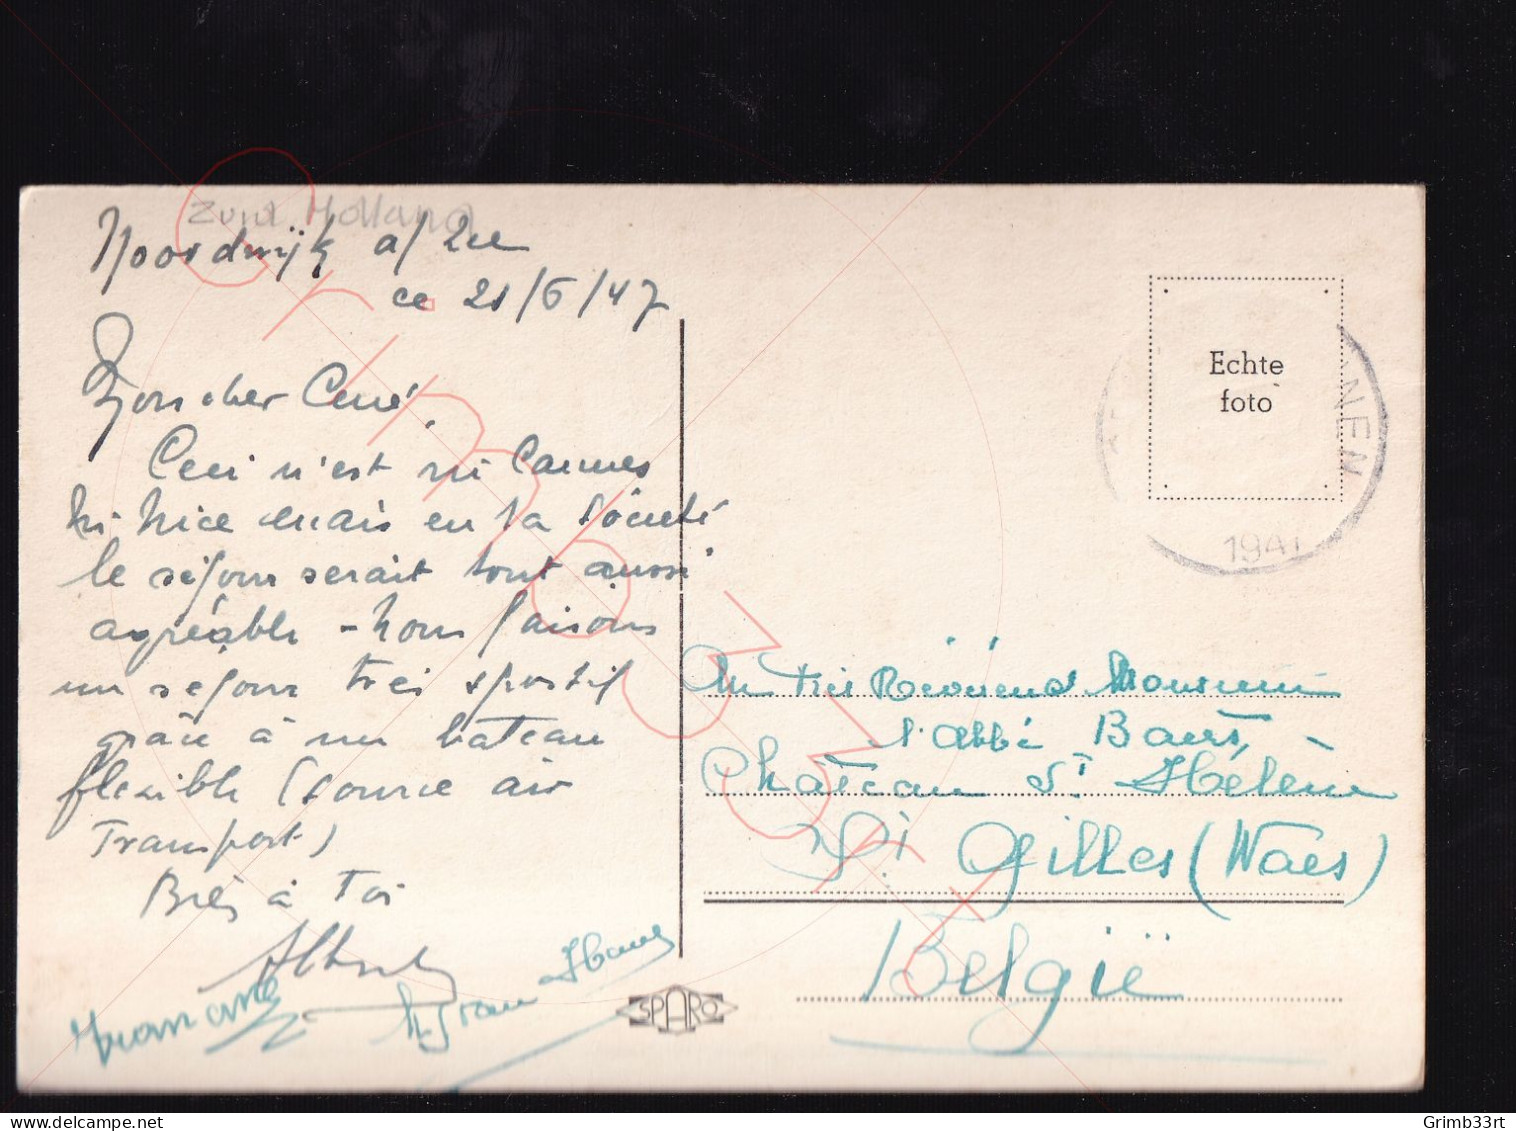 Zuid Holland
Noordwijk a/Zee
ce 21/6/47
Mon cher Curé.
Ceci n'est ni Cannes
ni Nice mais en la Société
le séjour serait tout aussi
agréable - Nous faisons
un séjour très sportif
grâce à un bateau
flexible (source air
Transport)
Bien à Toi
Albert
Echte
foto
NEN
1947
Au très Révérend Monsieur
l'abbé Baers,
Château St Hélène
St Gilles (Waes)
België
SPARO
Grimb33rt
Grimb33rt